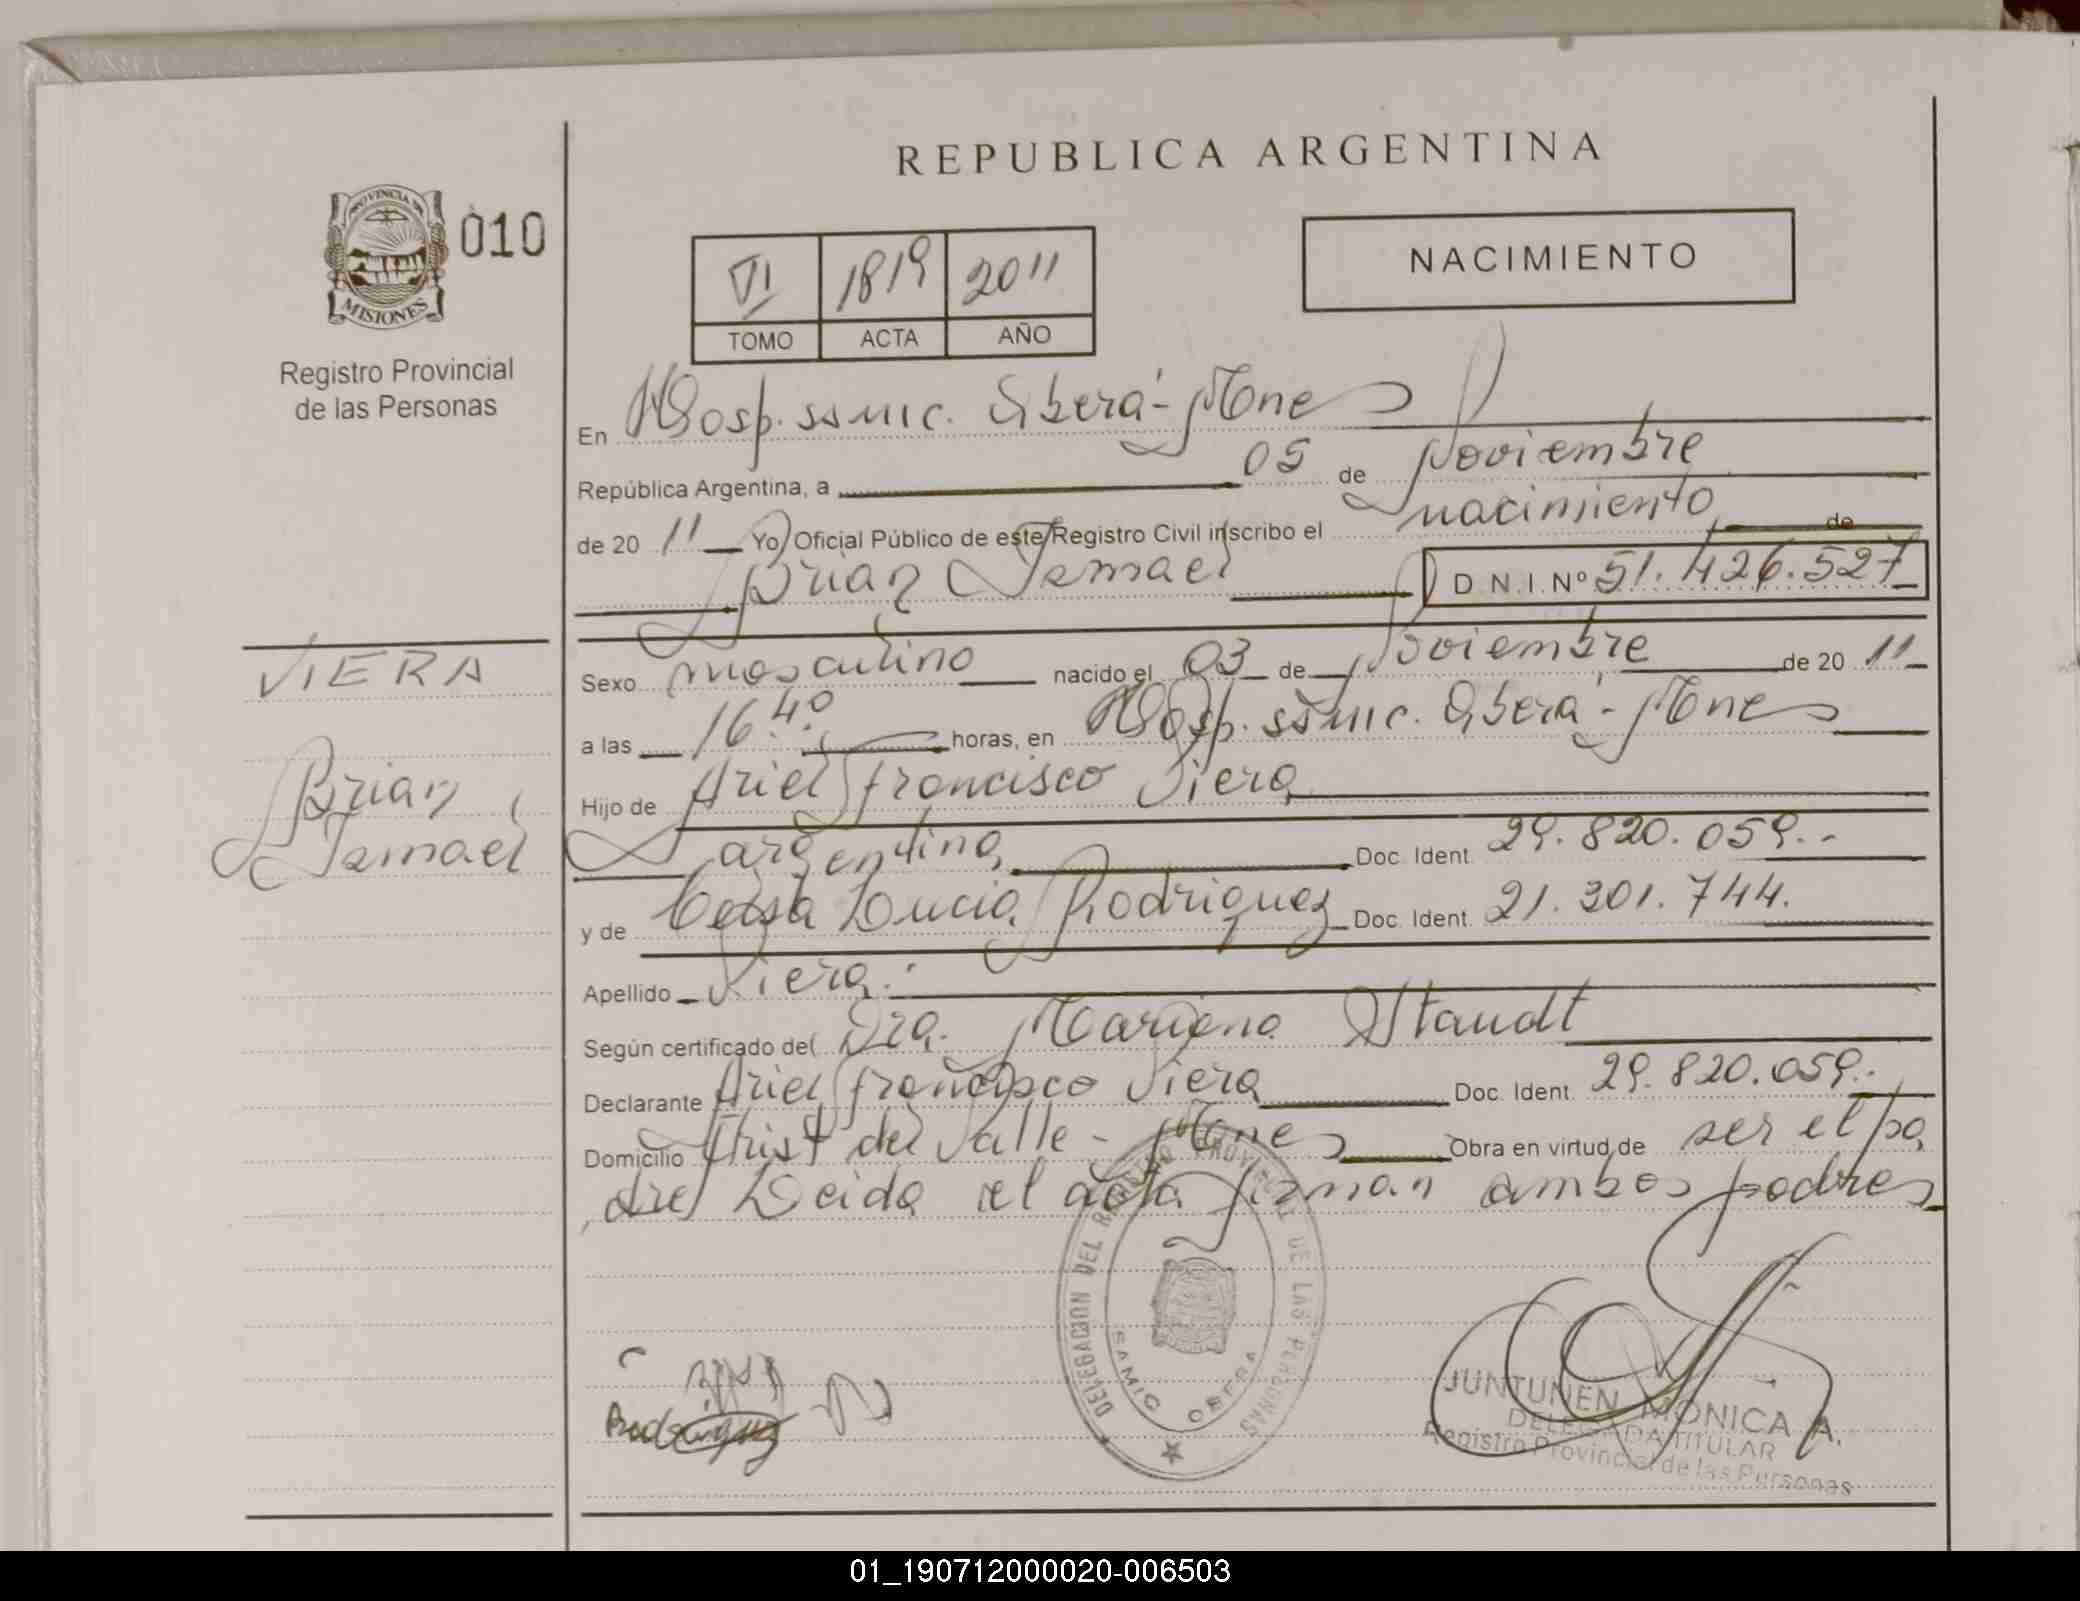 REPUBLICA ARGENTINA
PROVINCIA DE
MISIONES
010
Registro Provincial
de las Personas
VI 1819 2011
TOMO ACTA AÑO
NACIMIENTO
En Hosp. ssmic. Oberá - Mnes
República Argentina, a 05 de Noviembre
de 20 11 Yo Oficial Público de este Registro Civil inscribo el nacimiento de
Brian Ismael D.N.I. Nº 51.426.527
VIERA
Brian
Ismael
Sexo masculino nacido el 03 de Noviembre de 20 11
a las 16.40 horas, en Hosp. ssmic. Oberá - Mnes
Hijo de Ariel Francisco Viera
argentina Doc. Ident. 29.820.059.-
y de Lucia Rodriguez Doc. Ident. 21.301.744.
Apellido Viera.
Según certificado del Dra. Mariana Staudt
Declarante Ariel Francisco Viera Doc. Ident. 29.820.059.-
Domicilio Arist del Valle - Mnes Obra en virtud de ser el pa
dre Leida el acta firman ambos padres
DELEGACION DEL REGISTRO PROVINCIAL DE LAS PERSONAS
SAMIC OBERA
Rodriguez
JUNTUNEN MONICA A.
DELEGADA TITULAR
Registro Provincial de las Personas
01_190712000020-006503